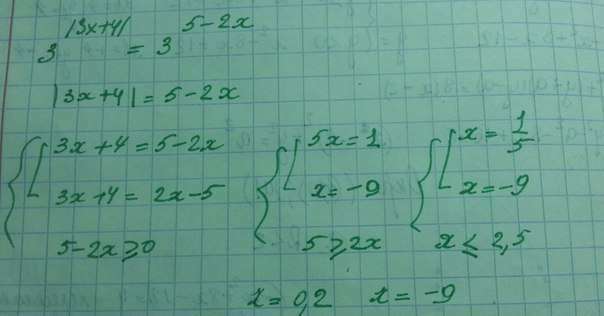 3^|3x+4| = 3^5-2x
|3x+4| = 5-2x
3x+4 = 5-2x
3x+4 = 2x-5
5-2x ≥ 0
5x = 1
x = -9
5 ≥ 2x
x = 1/5
x = -9
x ≤ 2,5
x = 0,2 x = -9